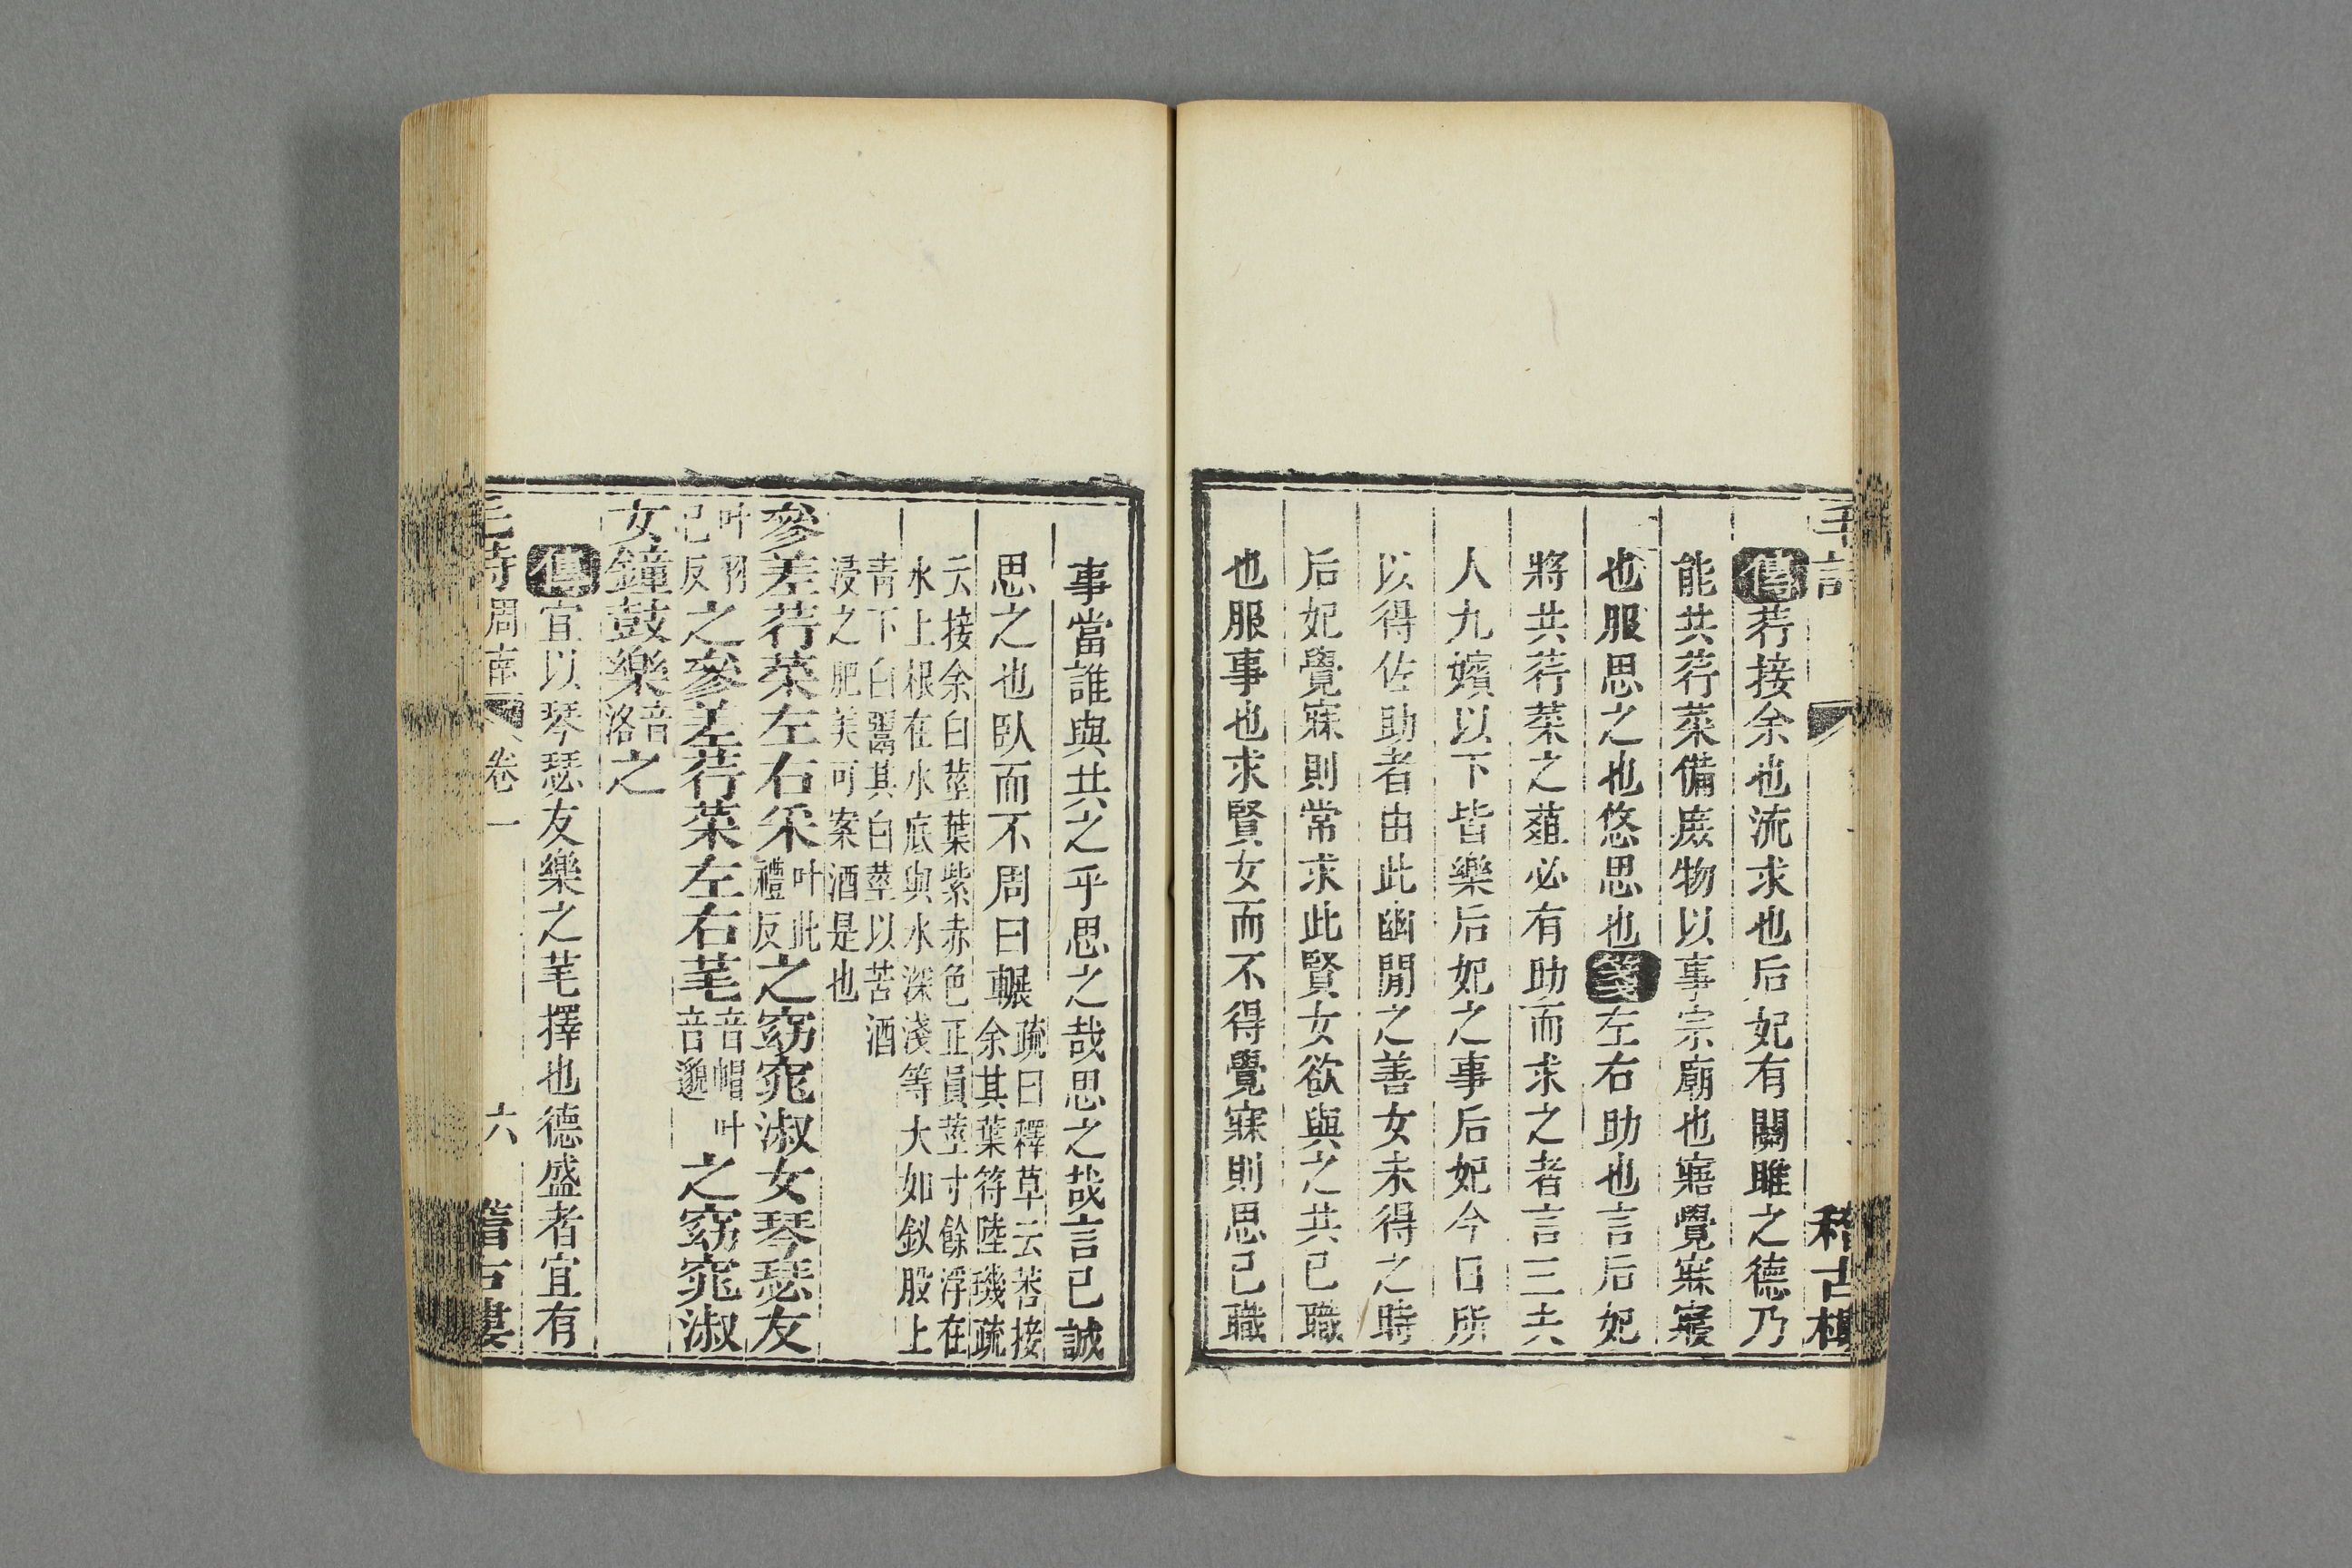 傳荇接余也流求也后妃有關雎之德乃
能共荇菜備庻物以事宗廟也寤覺寐寢
也服思之也悠思也箋左右助也言后妃
將共荇菜之葅必有助而求之者言三夫
人九嬪以下皆樂后妃之事后妃今日所
以得佐助者由此幽閒之善女未得之時
后妃覺寐則常求此賢女欲與之共己職
也服事也求賢女而不得覺寐則思己職
事當誰與共之乎思之哉思之哉言己誠
思之也臥而不周曰輾疏曰釋草云莕接
余其葉符陸璣疏
云接余白莖葉紫赤色正員莖寸餘浮在
水上根在水底與水深淺等大如釵股上
青下白鬻其白莖以苦酒
浸之肥美可案酒是也
參差荇菜左右采叶此禮反之窈窕淑女琴瑟友
叶羽己反之參差荇菜左右芼音帽叶音邈之窈窕淑
女鐘鼓樂音洛之
傳宜以琴瑟友樂之芼擇也德盛者宜有
毛詩周南 卷一 六 稽古樓